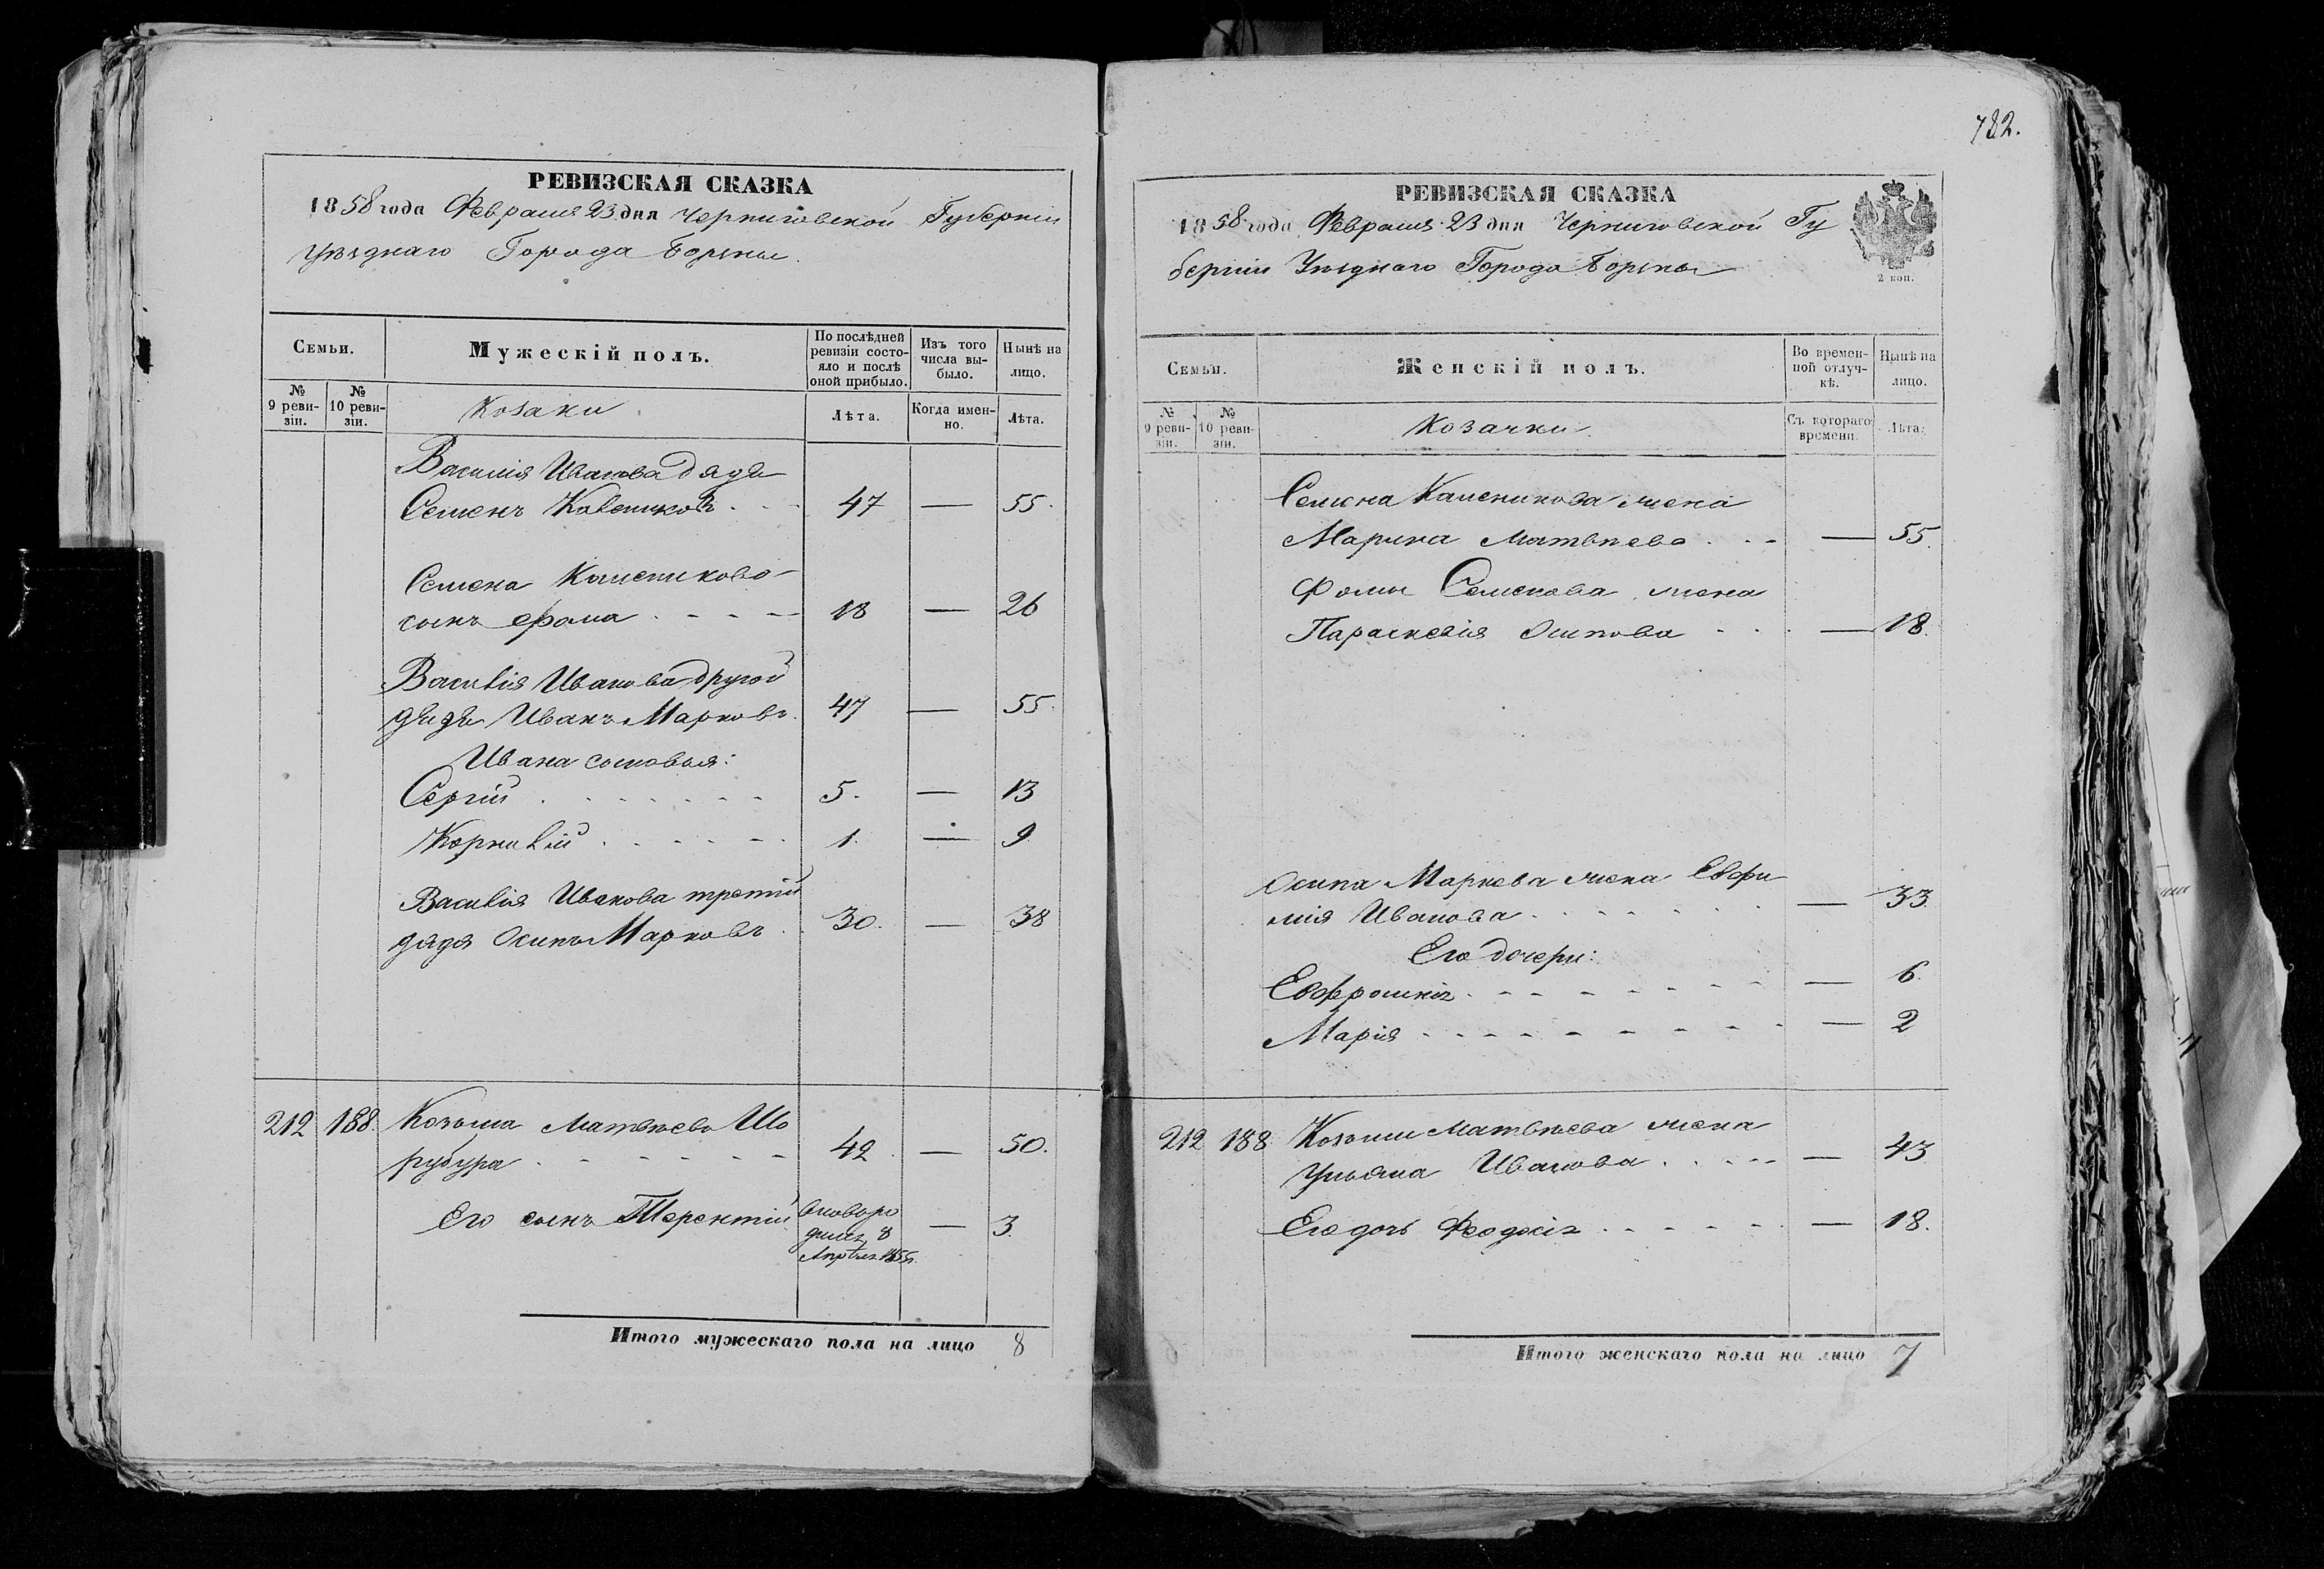 782.
РЕВИЗСКАЯ СКАЗКА
1858 года Февраля 23 дня Черниговской Губерніи
Уѣзднаго Города Борзны.
Семьи.
Мужескій полъ.
По послѣдней ревизіи состояло и послѣ оной прибыло.
Изъ того числа выбыло.
Нынѣ на лицо.
№ 9 ревизіи.
№ 10 ревизіи.
Козаки.
Лѣта.
Когда именно.
Лѣта.
Василія Иванова дядя
Семенъ 47 — 55.
Семена
сынъ Фома 18 — 26
Василія Иванова другой
дядя Иванъ Марковъ. 47 — 55.
Ивана сыновья:
Сергій 5. — 13
Корнилій 1. — 9.
Василія Иванова третій
дядя Осипъ Марковъ 30. — 38
212 188. Козьма Матвѣевъ Ша
рубура 42. — 50.
Его сынъ Терентій вновь ро
дился 8 — 3.
Апрѣля 1855.
Итого мужескаго пола на лицо 8
РЕВИЗСКАЯ СКАЗКА
1858 года Февраля 23 дня Черниговской Гу
берніи Уѣзднаго Города Борзны
2 коп.
Семьи.
Женскій полъ.
Во временной отлучкѣ.
Нынѣ на лицо.
№ 9 ревизіи.
№ 10 ревизіи.
Козачки.
Съ котораго времени.
Лѣта.
Семена жена
Марина Матвѣева — 55.
Фомы Семенова жена
Параскевія Осипова — 18.
Осипа Маркова жена Евфи
мія Иванова — 33.
Его дочери:
Евфросинія — 6.
Марія — 2
212 188 Козьмы Матвѣева жена
Ульяна Иванова — 43
Его дочь Феодосія — 18.
Итого женскаго пола на лицо 7